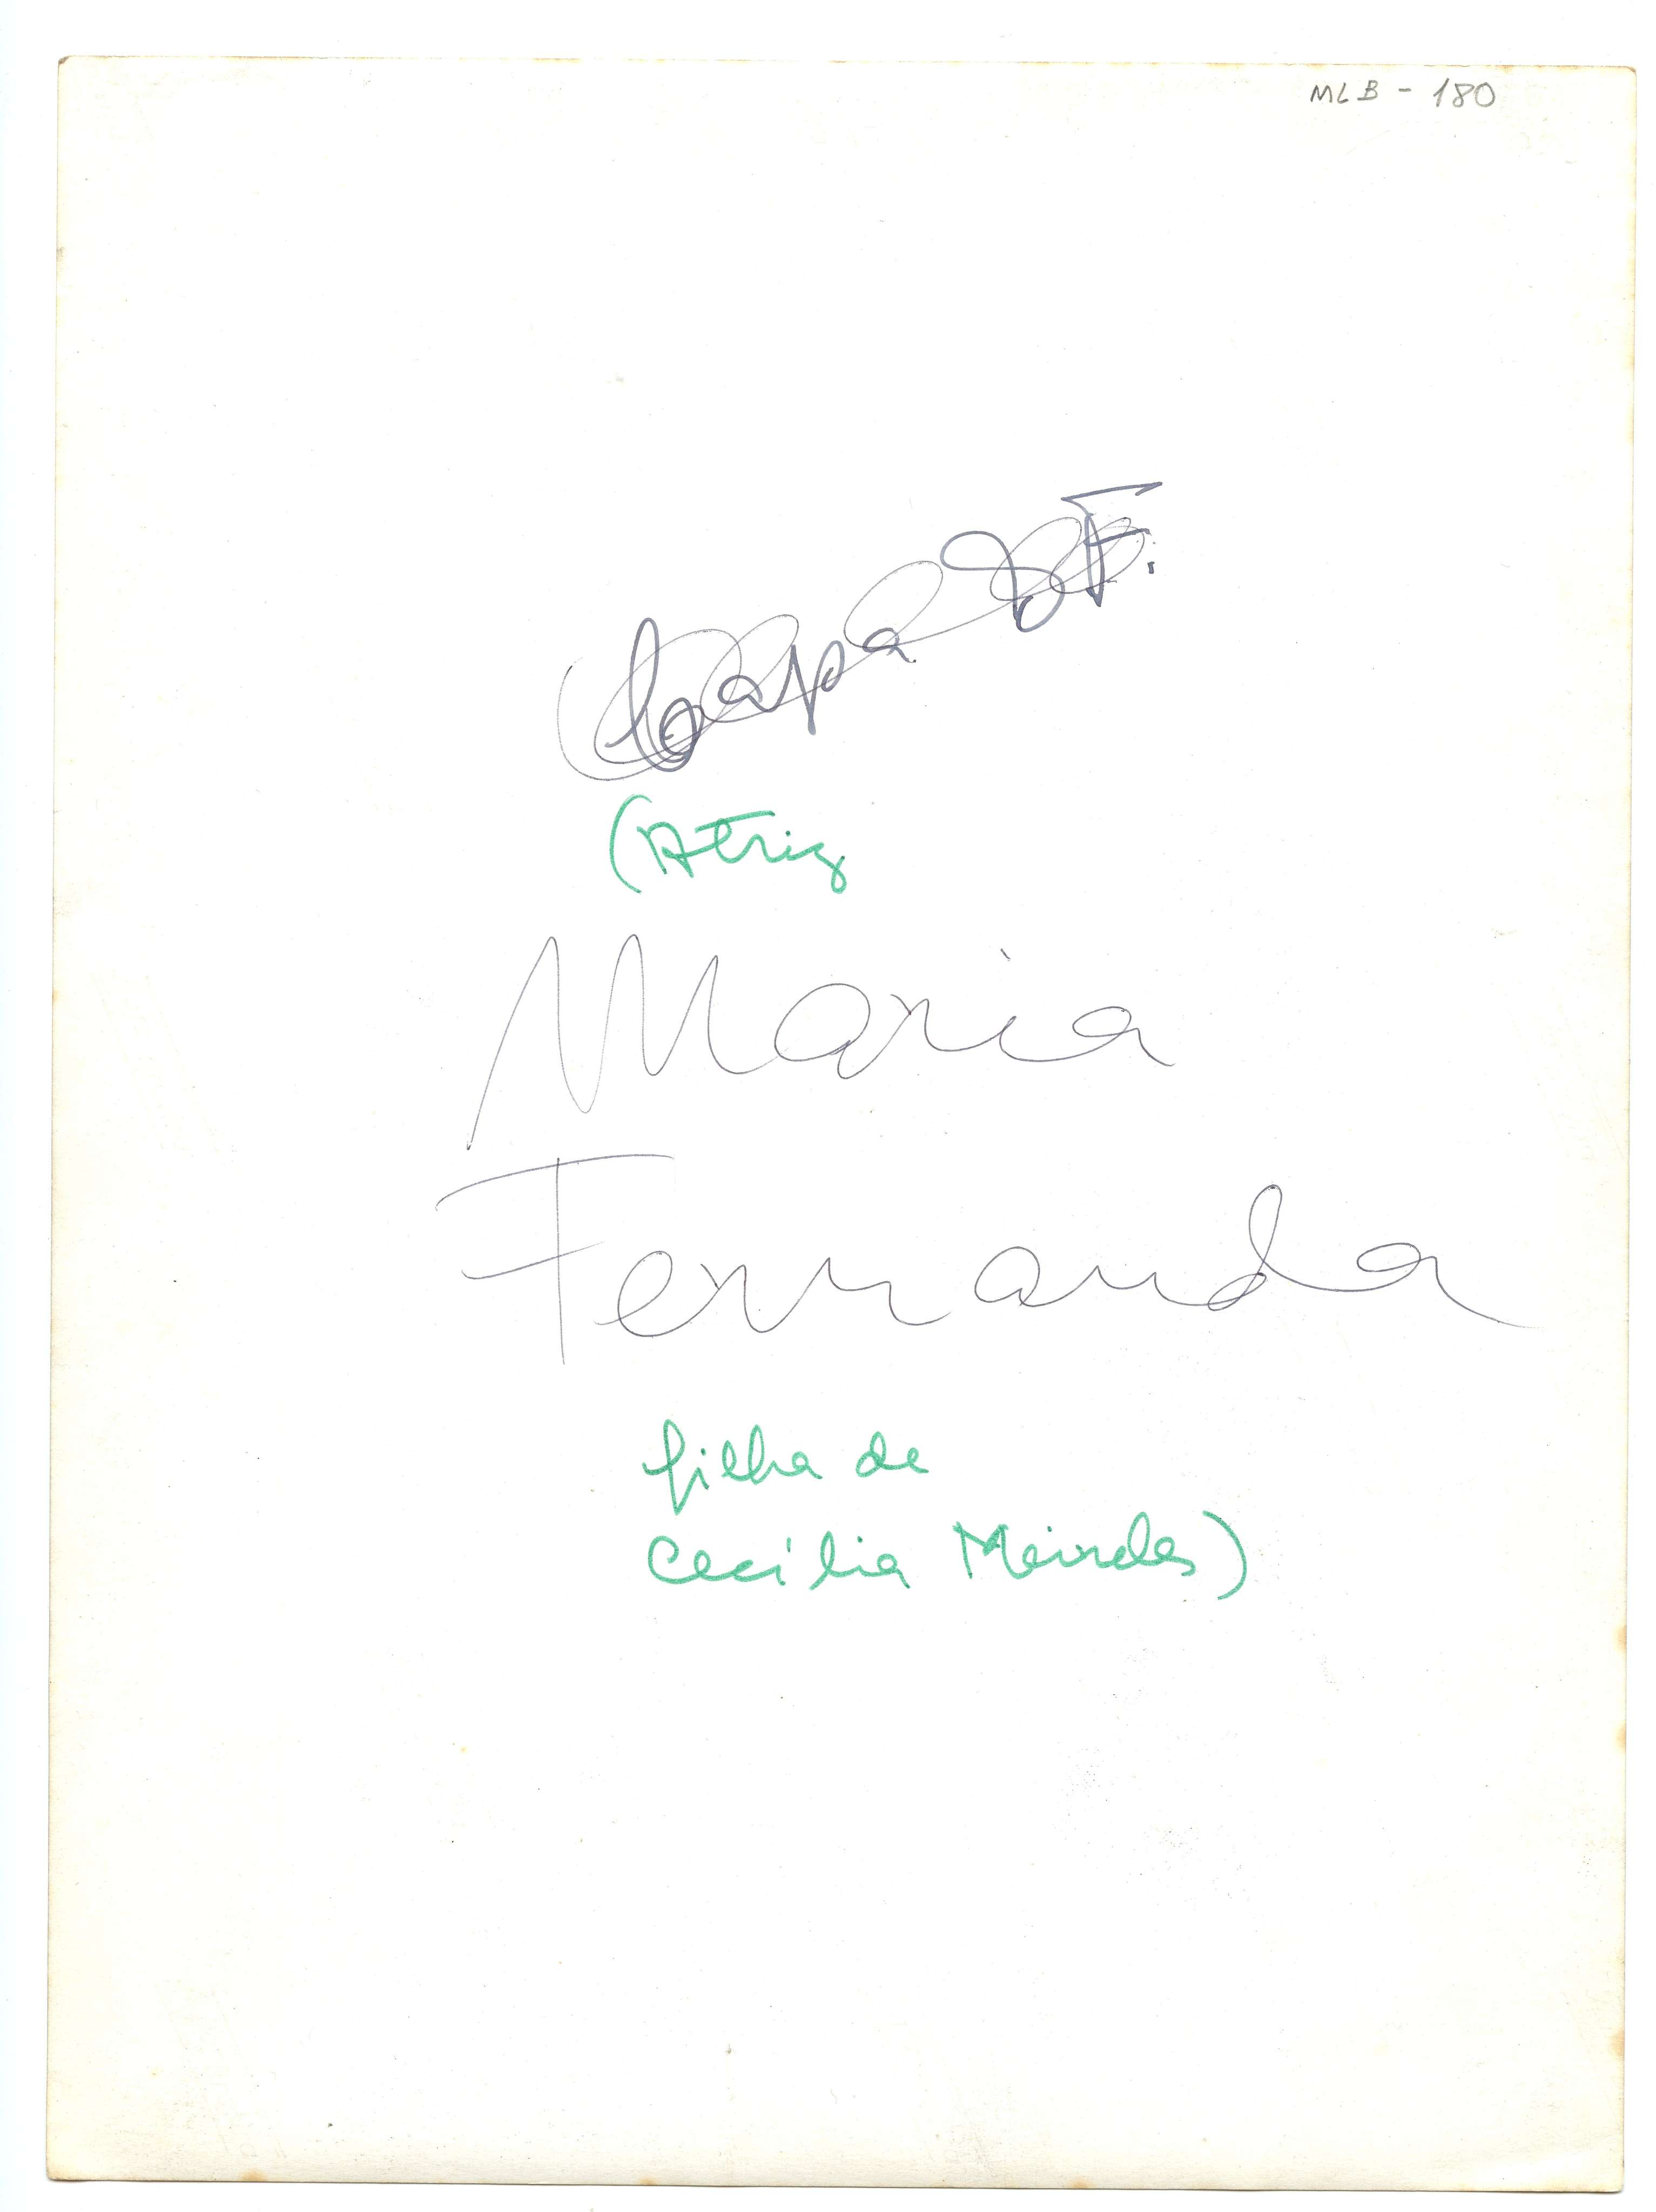 MLB - 180
(Atriz
Maria
Fernanda
filha de
Cecília Meireles)